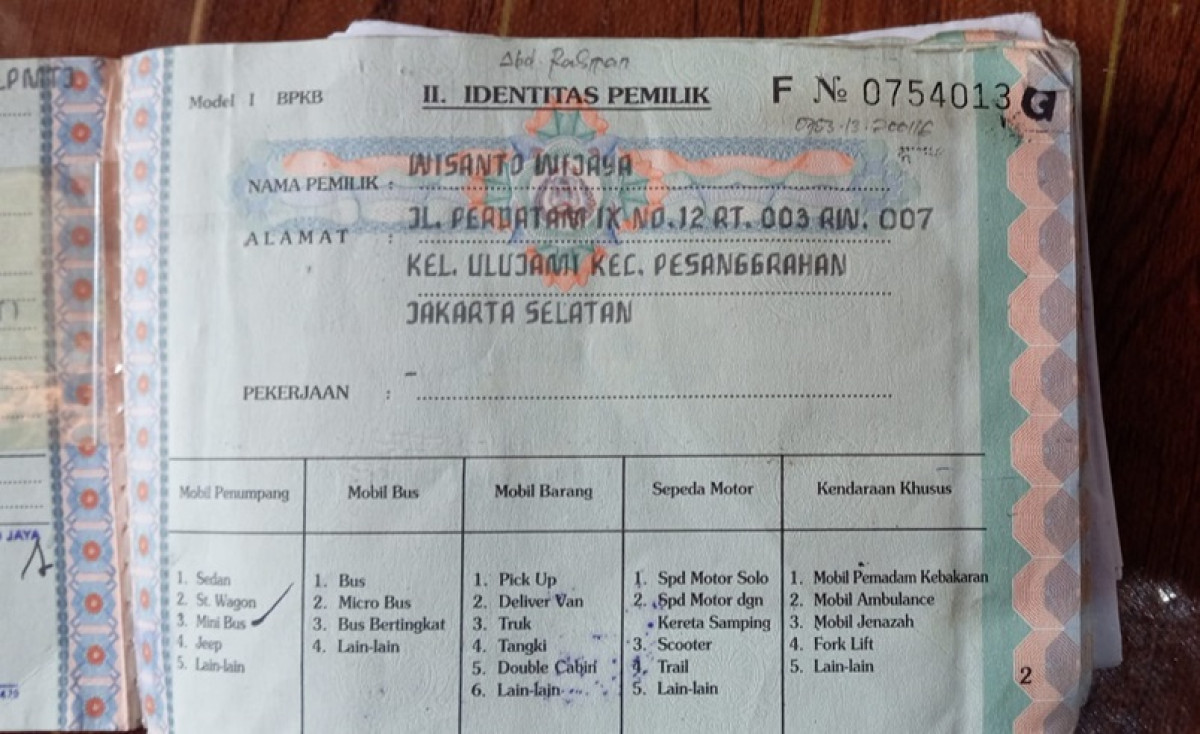 Abd. Rahman
Model I BPKB
II. IDENTITAS PEMILIK
F № 0754013 G
NAMA PEMILIK : WISANTO WIJAYA
ALAMAT : JL. PERDATAM IX NO.12 RT. 003 RW. 007
KEL. ULUJAMI KEC. PESANGGRAHAN
JAKARTA SELATAN
PEKERJAAN : -
Mobil Penumpang
1. Sedan
2. St. Wagon
3. Mini Bus
4. Jeep
5. Lain-lain
Mobil Bus
1. Bus
2. Micro Bus
3. Bus Bertingkat
4. Lain-lain
Mobil Barang
1. Pick Up
2. Deliver Van
3. Truk
4. Tangki
5. Double Cabin
6. Lain-lain
Sepeda Motor
1. Spd Motor Solo
2. Spd Motor dgn
Kereta Samping
3. Scooter
4. Trail
5. Lain-lain
Kendaraan Khusus
1. Mobil Pemadam Kebakaran
2. Mobil Ambulance
3. Mobil Jenazah
4. Fork Lift
5. Lain-lain
2
JAYA